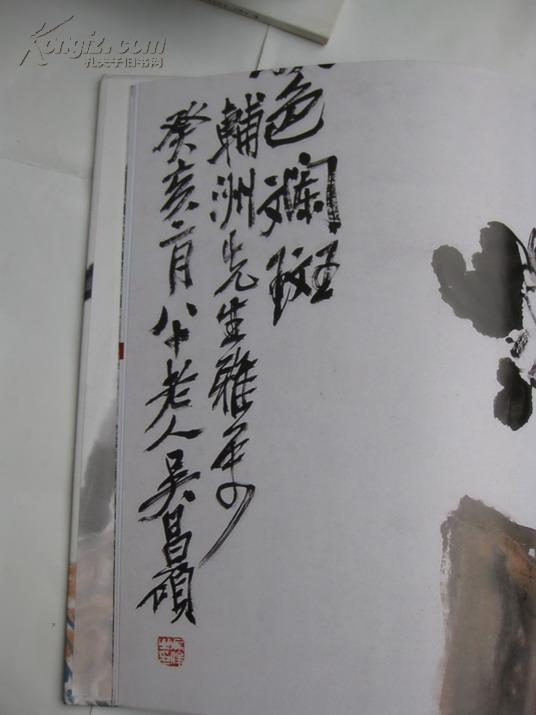 色斓斑
輔洲先生雅属
癸亥二月八十老人吴昌碩
Kongfz.com
孔夫子旧书网